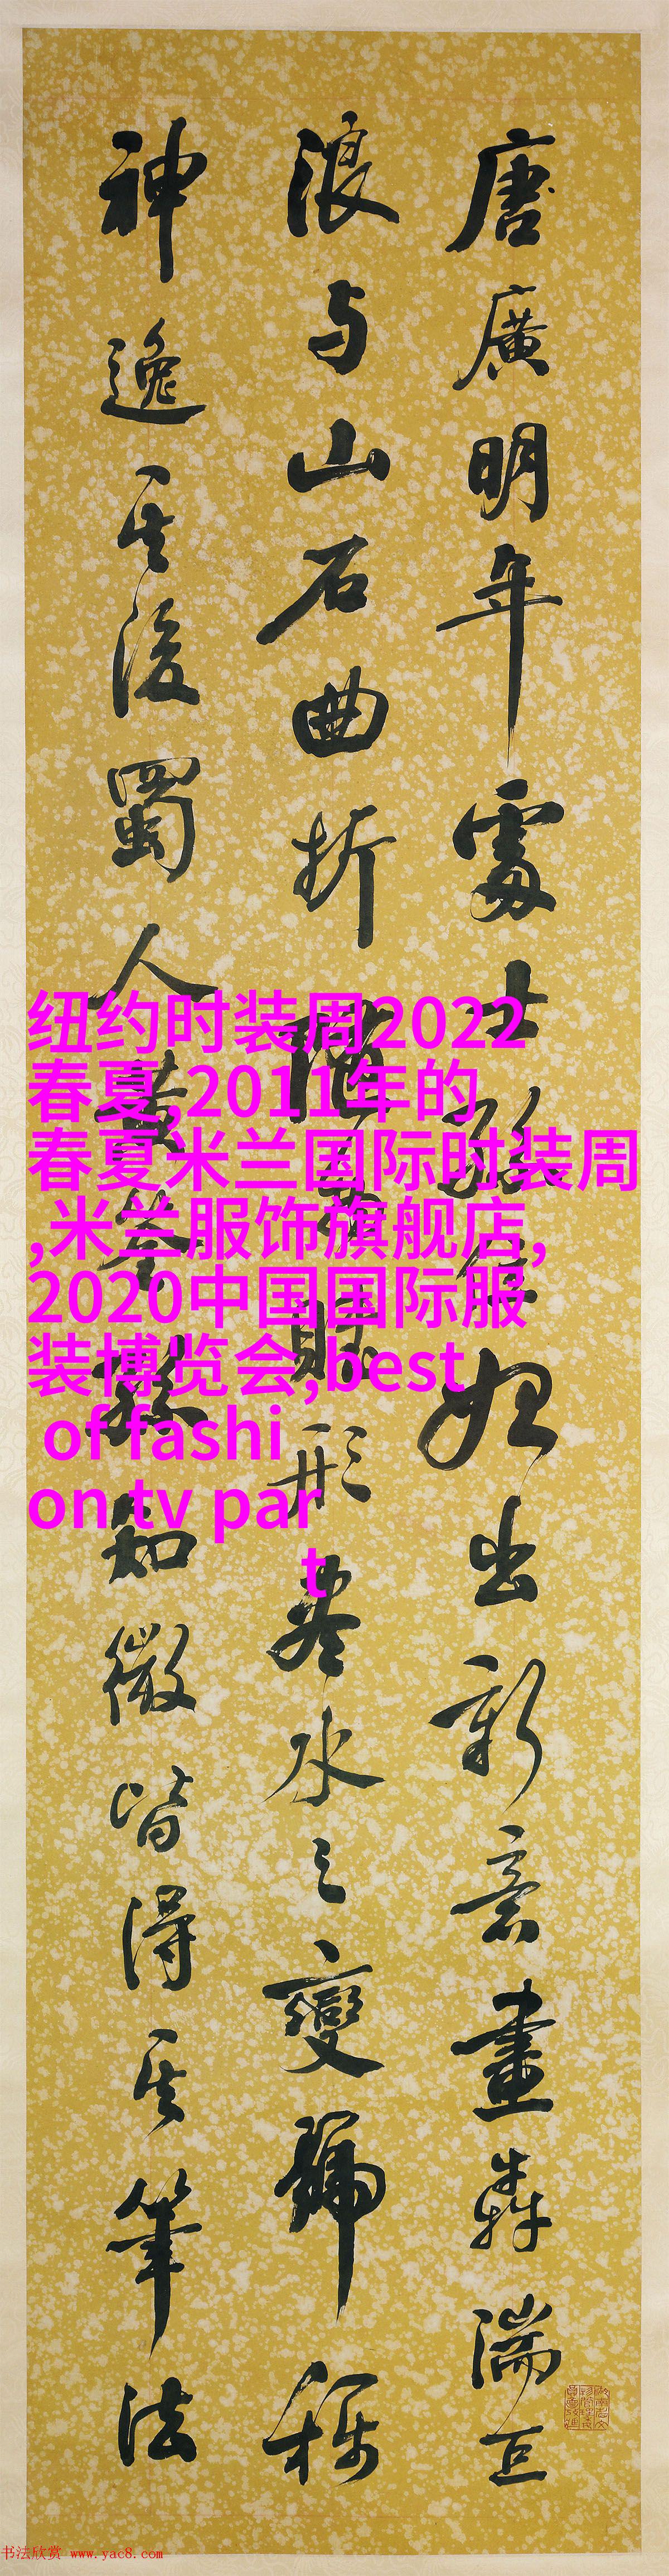 唐廣明年處士孫位始出新意畫奔湍巨
浪与山石曲折隨物賦形盡水之變號稱
神逸其後蜀人黄筌孫知微皆得其筆法
纽约时装周2022
春夏,2011年的
春夏米兰国际时装周
,米兰服饰旗舰店,
2020中国国际服
装博览会,best
of fashi
on tv par
t
书法欣赏 www.yac8.com